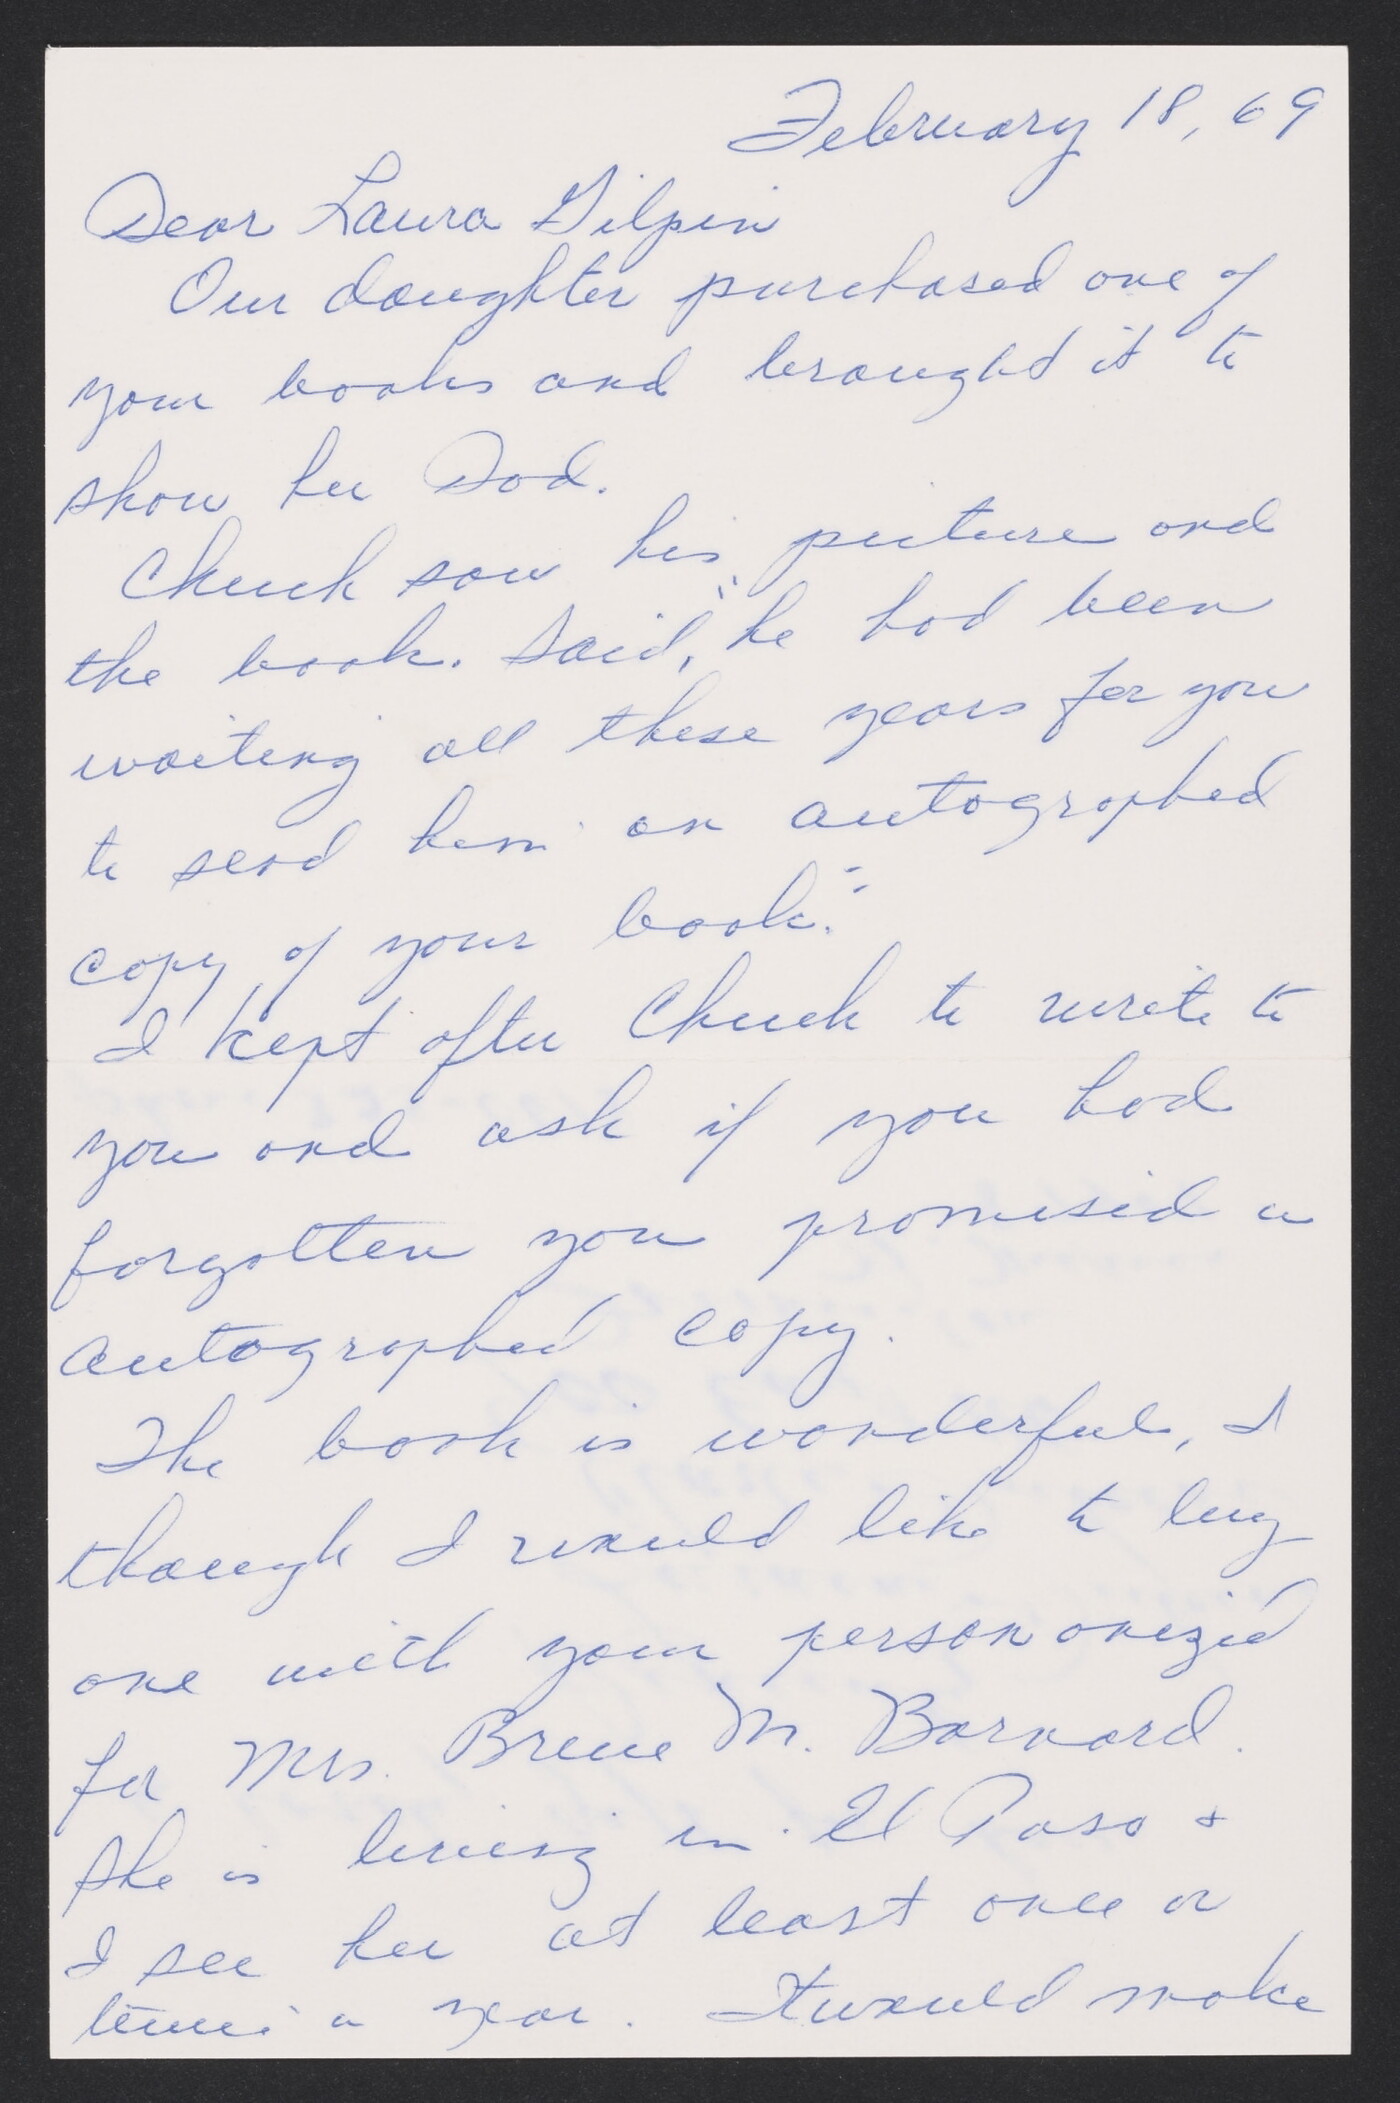 February 18, 69
Dear Laura Gilpin
Our daughter purchased one of
your books and brought it to
show her Dad.
Chuck saw his picture and
the book. Said, "he had been
waiting all these years for you
to send him an autographed
copy of your book."
I kept after Chuck to write to
you and ask if you had
forgotten you promised a
autographed copy.
The book is wonderful, I
though I would like to buy
one with your personanized
for Mrs. Breue M. Barnard.
She is living in El Paso &
I see her at least once or
twice a year. It would make